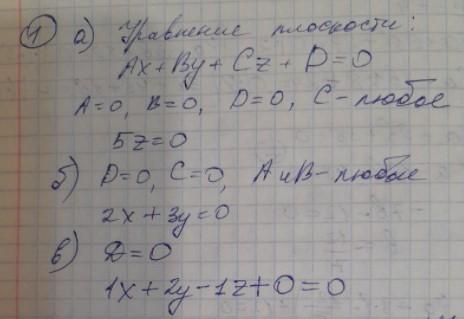 1 а) Уравнение плоскости:
Ax + By + Cz + D = 0
A=0, B=0, D=0, C - любое
5z=0
б) D=0, C=0, A и B - любое
2x + 3y = 0
в) D = 0
1x + 2y - 1z + 0 = 0